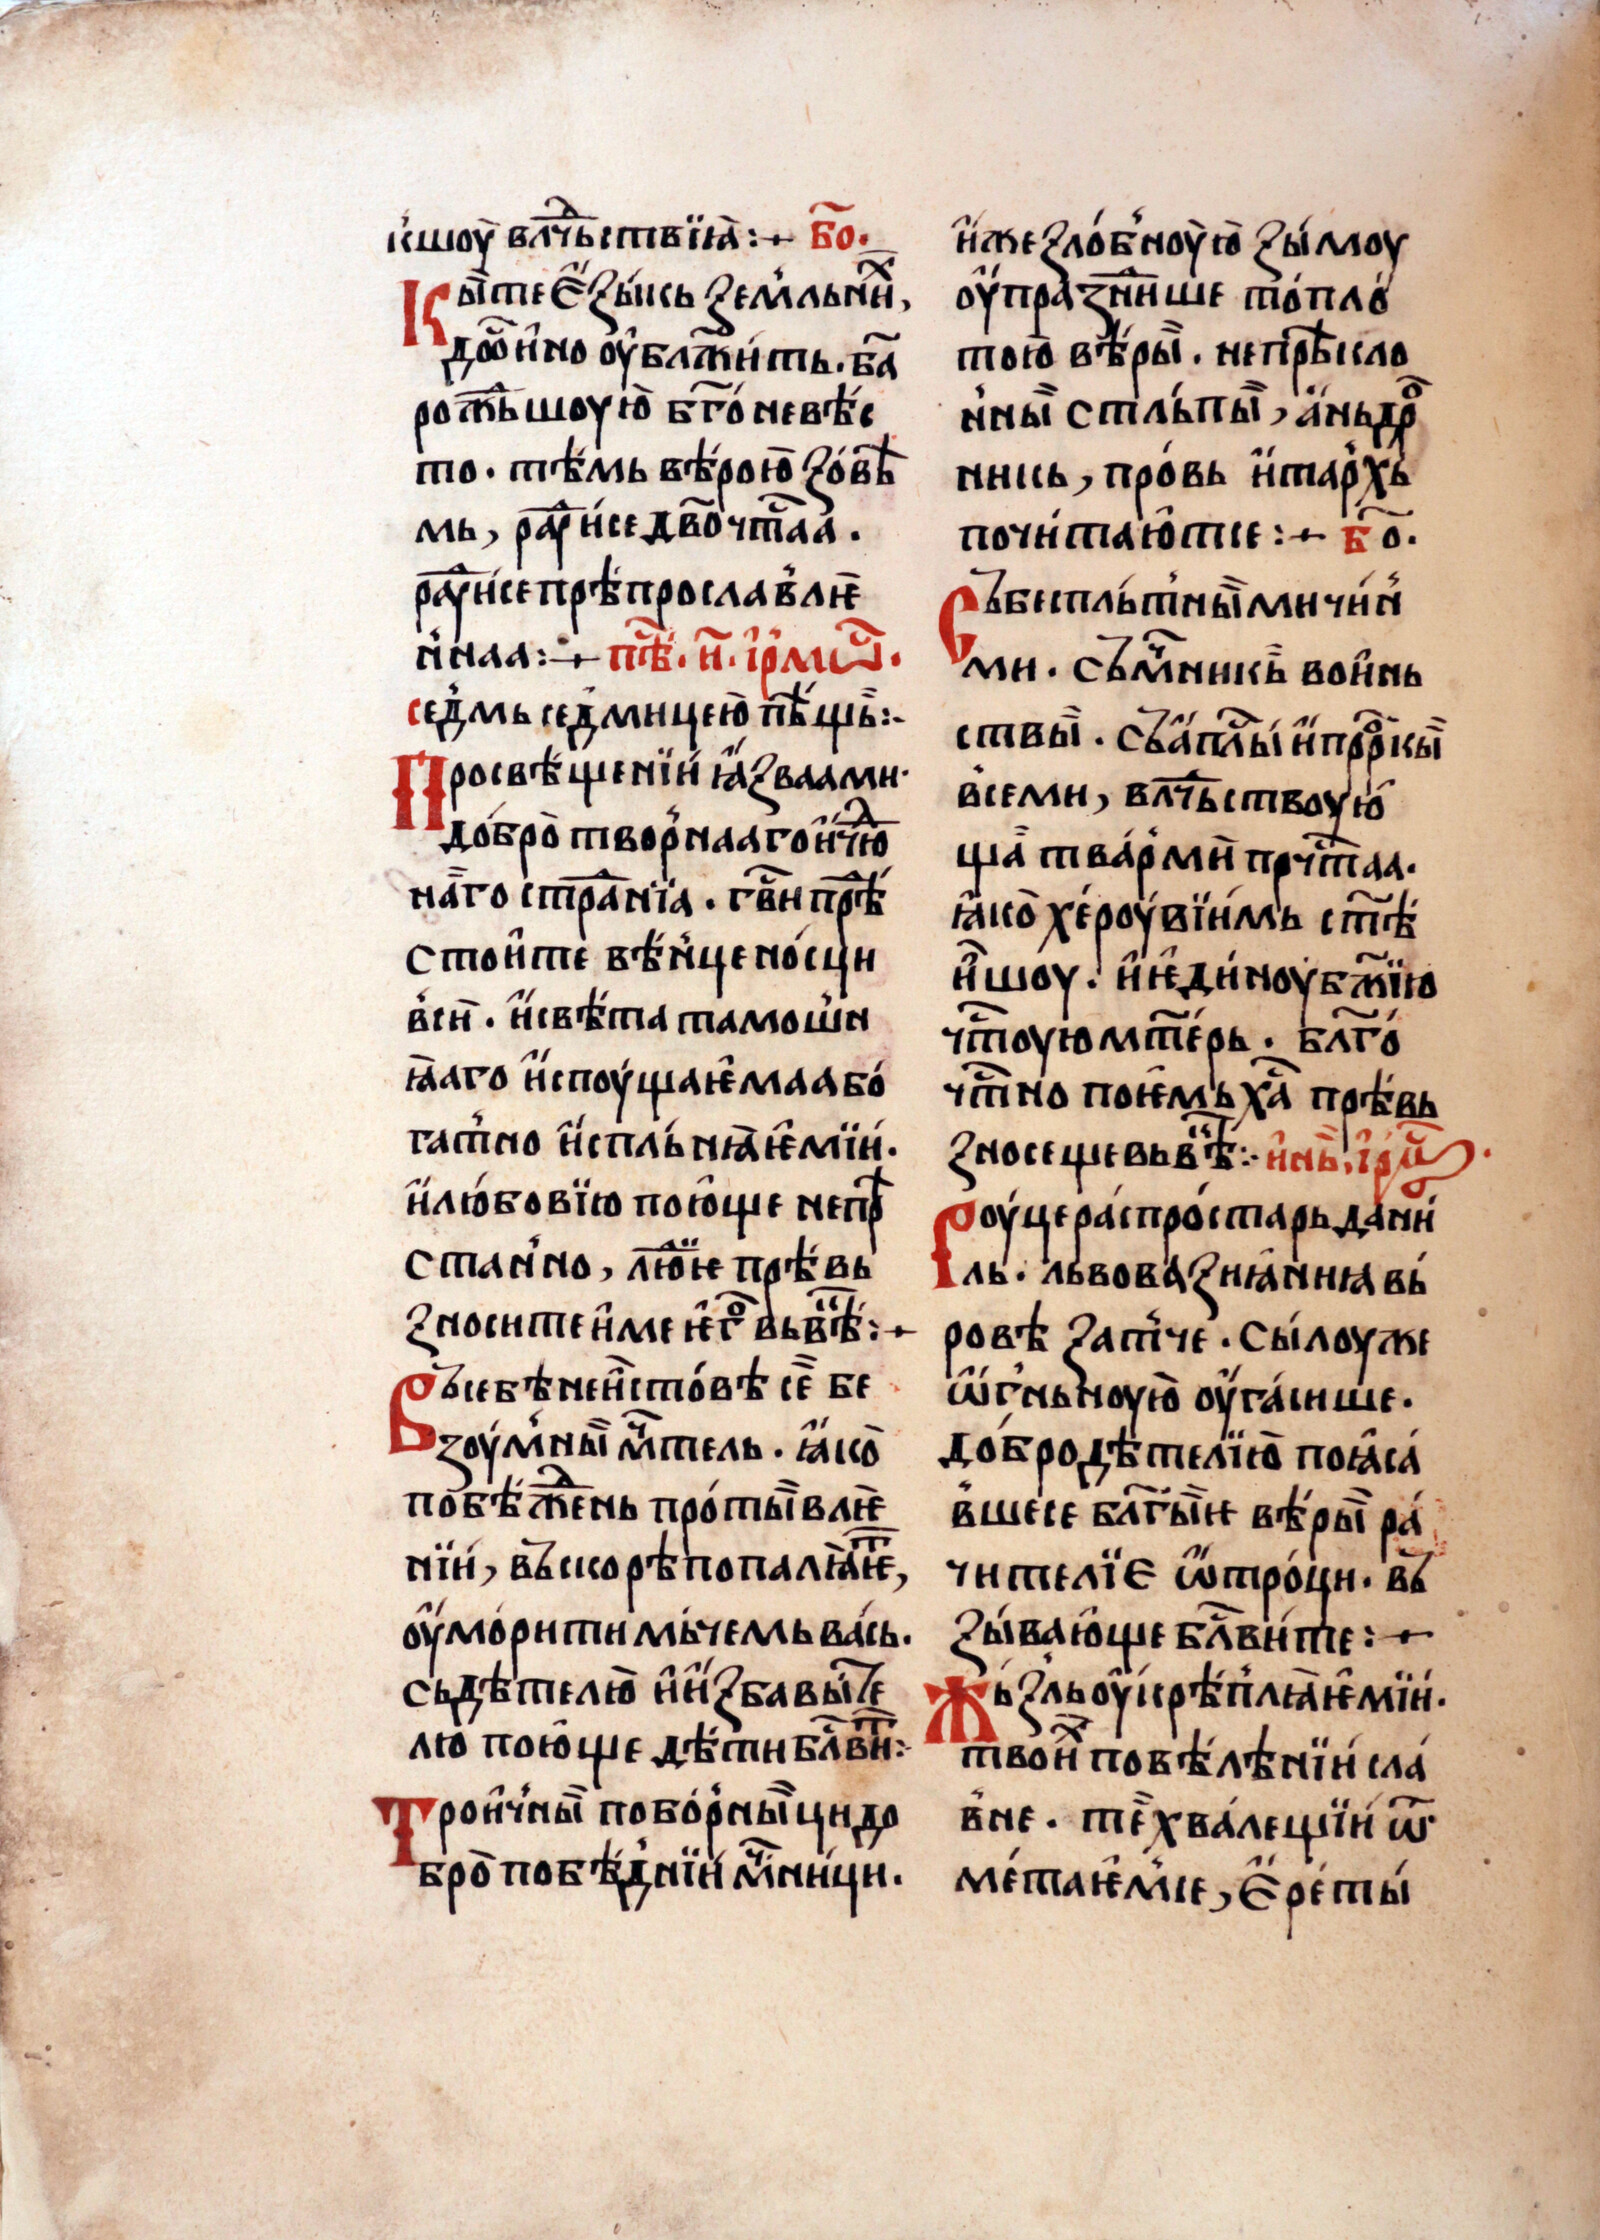 кшоу̀ влⷣчьствїꙗ̀:+ бо҃.
Кы̏те є҆зы́кь земⷧ҇льнихⷯ,
дѡⷭ҇и҆но оу҆блж҃и́ть. ба҃
рожⷣьшоую̀ бг҃оневѣ́с
то. тѣ́мь вѣ́рою̀ зо́вѣ
мь, раⷣу́исе дв҃о чтⷭ҇аа.
раⷣу́исе прѣпрославлѥ
ннаа:+ пѣⷭ҇. и҃. і҆рмѡⷭ҇.
се́дмь седмицею̀ пѣ́щь:-
Просвѣщенїи́ ꙗ҆зваами.
до́бро̀творнааго и҆ чюⷣ
на̏го стрⷣанїа. гв҃и прѣⷣ
стои҆те вѣ́нценосци
вси̏. и҆ свѣ́та тамошн
ꙗ̀аго и҆споу́щаѥмаа бо́
гатно и҆спль́нꙗ̀ѥмїи́.
и҆ лю́бовїю пою҆ще непрѣ
станно, лю́ⷣїе прѣ́вь
зносите и҆ме ѥ҆гоⷬ҇ вьвѣ́кⷦ:+
Въ себѣ не и҆сто́вѣ се̏ бе
зоу́мны̏ мч҃тель. ꙗ҆ко̀
побѣжⷣень про́ты̏влѥ
нїи́, въскорѣ попалꙗ̀ѥⷮ,
оу҆мо́рити мь́чемь ва́сь.
съдѣ́телю̀ и҆ и҆збавы́те
лю пою҆ще дѣ́ти блⷭ҇виⷮ:-
Трои҆чны̏ побо́рны̏ци до
бро̀побѣ́днїи мⷱ҇ни́ци.
и҆же зло́бноу̀ю̀ зы́моу
оу҆празⷣнише то́пло́
тою̀ вѣ́ры̏. непрѣкло
нны̏ стль́пы̏, а҆нь́дроⷩ
никь, про́вь и҆ тарⷯь
почи́таю҆тсе:+ бо҃.
Съ беспль́тны̏ми чи́н
ми. съ мⷱ҇никѣ̏ вои҆нь
ствы̏. съ а҆плⷭ҇ы́ и҆ прⷪ҇ркы̏
всеми, влⷣчьствоую҆
ща̏ тва́рми̏ прчⷭ҇таа.
ꙗ҆ко̀ хе́роу́вїи́мь стⷭ҇ѣ́
и҆шоу. и҆ ѥ҆ди́ноу̀ бж҃їю
чтⷭ҇оую мт҃е́рь. бл҃го́
чтⷭ҇но поѥ҆мь ха҃ прѣ́вь
зносеще вь вѣ́кⷦ:- и҆нь̏. і҆рмⷭ҇.
Роу́це ра́спро́старь дани́
ль. львова знꙗ҆нниꙗ вы́
ровѣ затче. сы́лоу же
ѡ҆гньноую̀ оу҆га́сише.
до́бродѣтелїю̀ поꙗ҆са́
вшесе бл҃гы̏ѥ вѣ́ры̏ ра́
чителїє ѡ҆тро́ци. въ
зы́ваю҆ще блⷭ҇ви́те:+
Жь́зль оу҆крѣ́плꙗ̀ѥмїи́.
твои҆хⷯ повѣ́лѣнїи́ сла́
вне. те̏ хва́лещїи́ ѿ
ме́таѥ҆мсе, є҆ре́ты́